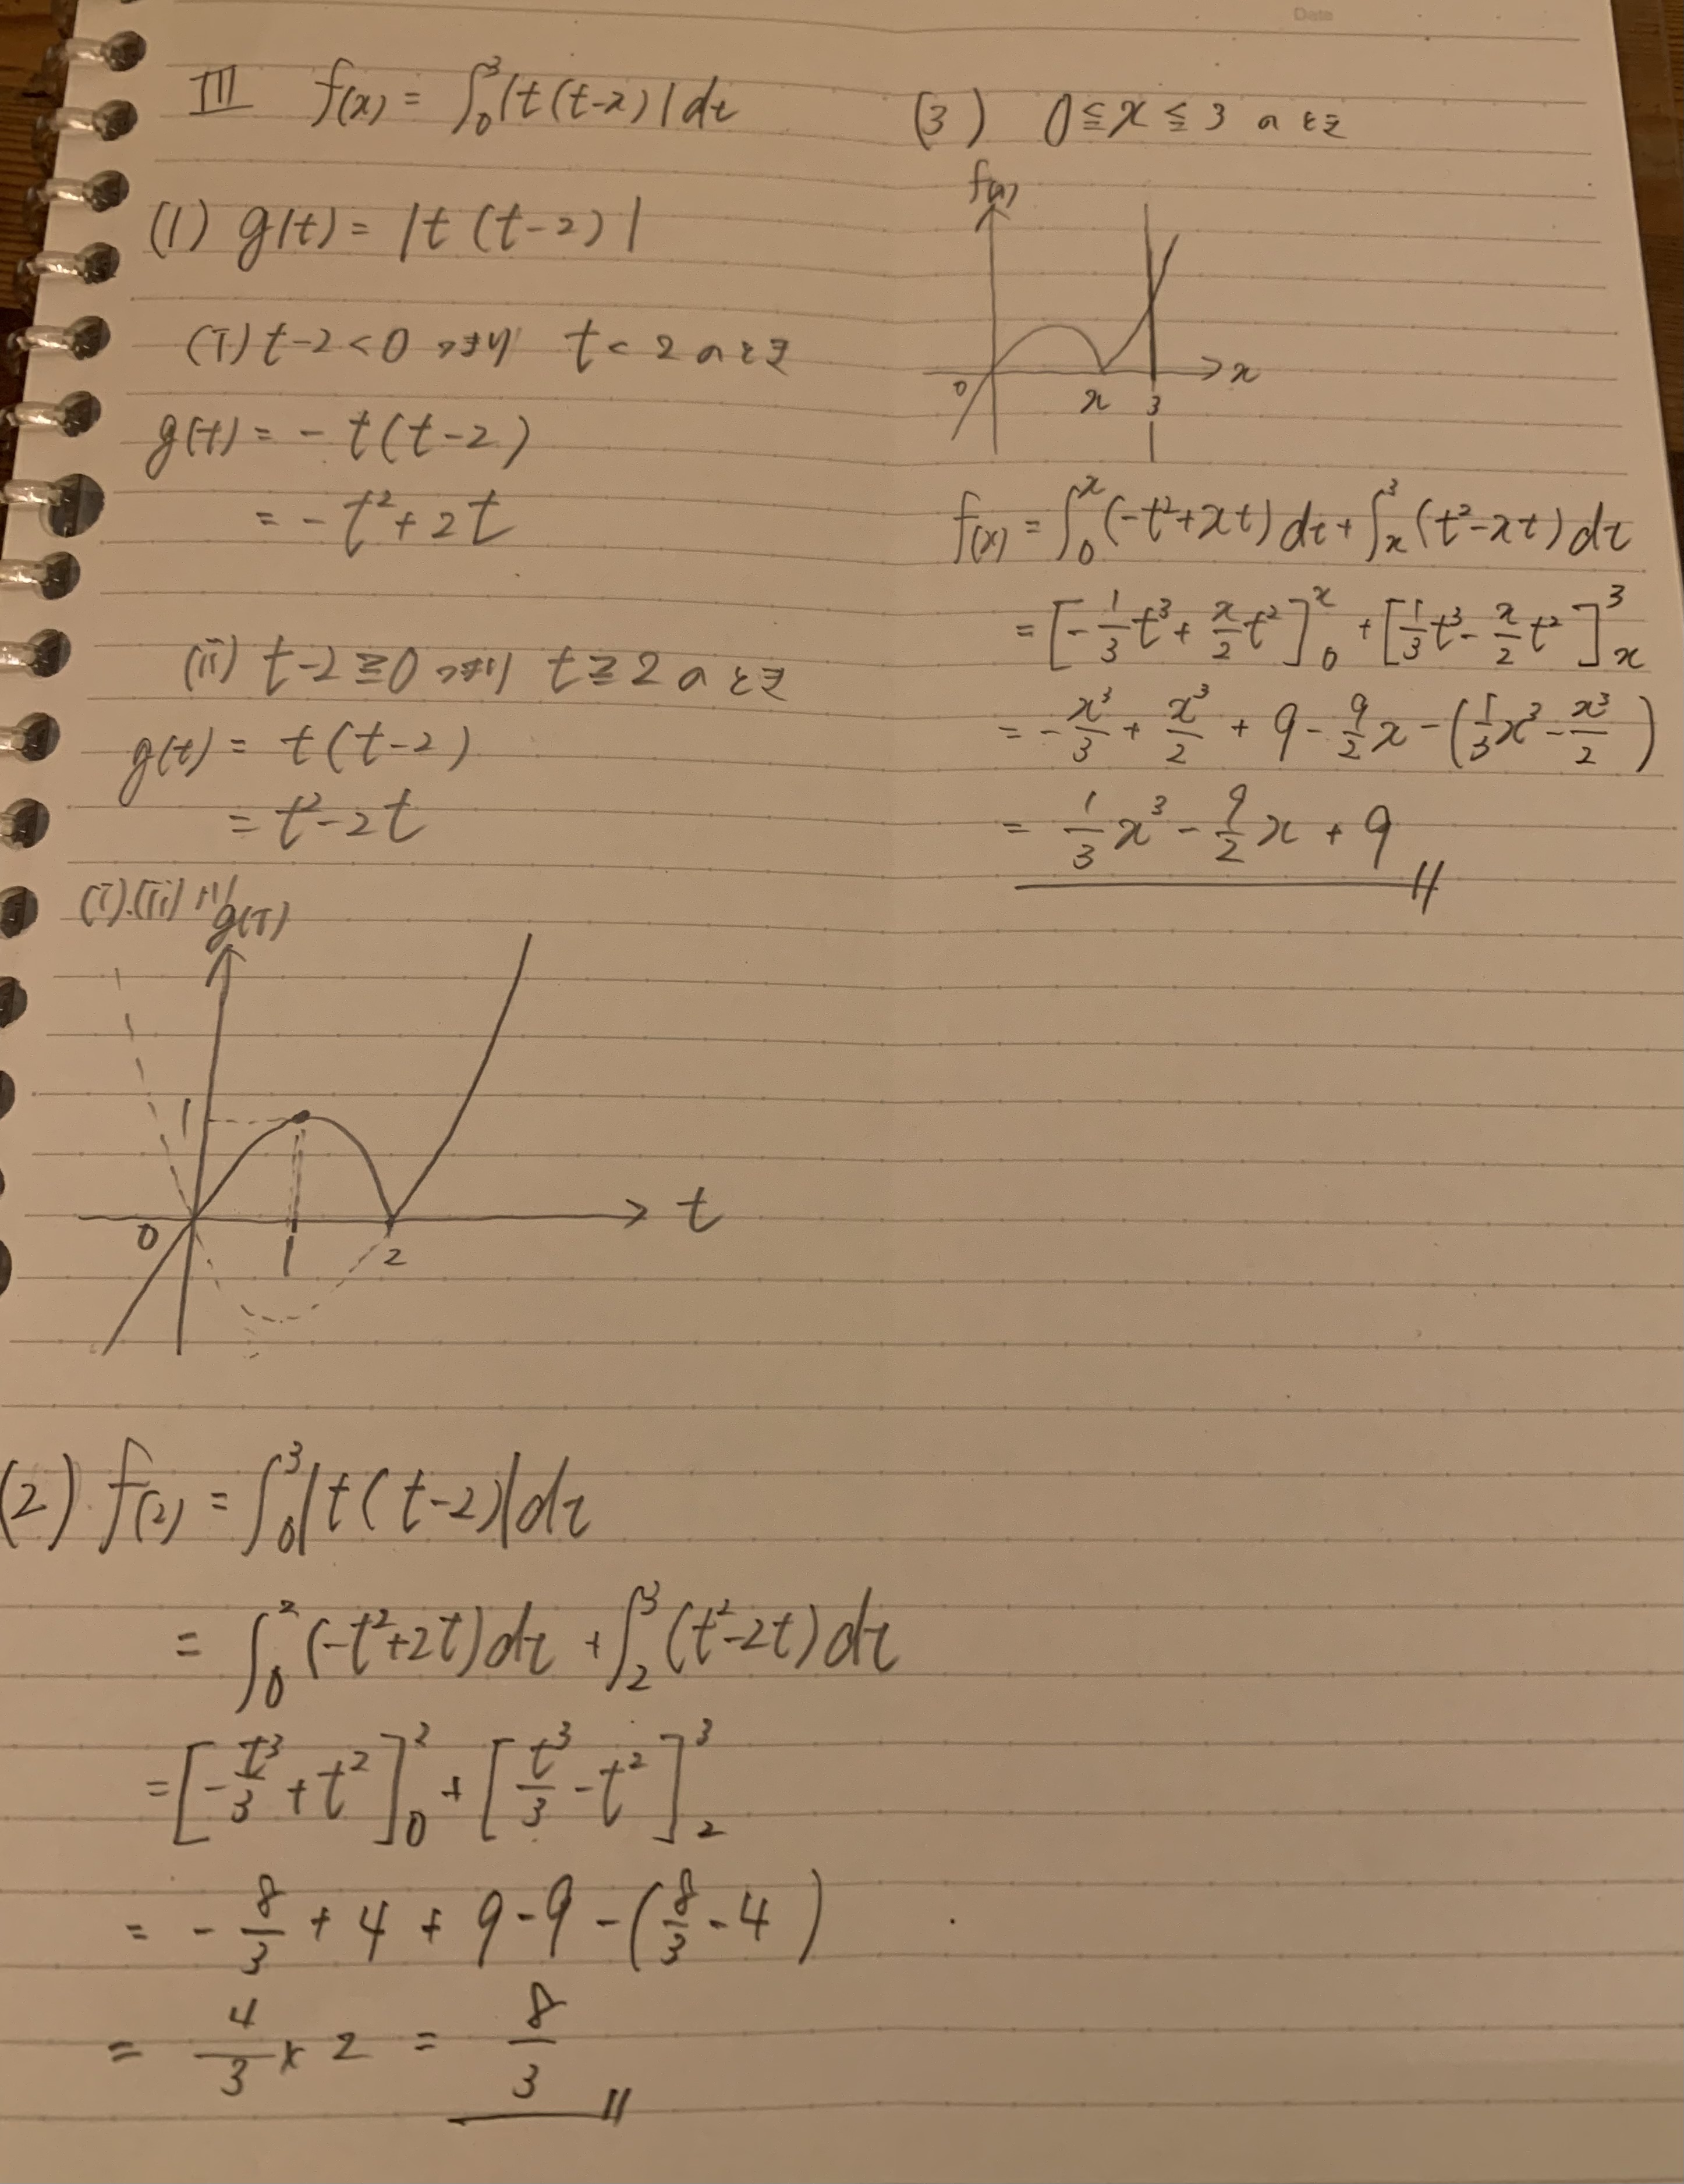 Date
III f(x) = ∫₀³ |t(t-x)| dt
(1) g(t) = |t(t-2)|
(i) t-2 < 0 つまり t < 2 のとき
g(t) = - t(t-2)
= - t² + 2t
(ii) t-2 ≧ 0 つまり t ≧ 2 のとき
g(t) = t(t-2)
= t² - 2t
(i).(ii) より
g(t)
1
0 1 2 t
(2) f(2) = ∫₀³ |t(t-2)| dt
= ∫₀² (-t²+2t) dt + ∫₂³ (t²-2t) dt
= [-t³/3 + t²]₀² + [t³/3 - t²]₂³
= - 8/3 + 4 + 9 - 9 - (8/3 - 4)
= 4/3 × 2 = 8/3
(3) 0 ≦ x ≦ 3 のとき
f(x)
0 x 3 x
f(x) = ∫₀ˣ (-t²+xt) dt + ∫ₓ³ (t²-xt) dt
= [-1/3 t³ + x/2 t²]₀ˣ + [1/3 t³ - x/2 t²]ₓ³
= - x³/3 + x³/2 + 9 - 9/2 x - (1/3 x³ - x³/2)
= 1/3 x³ - 9/2 x + 9